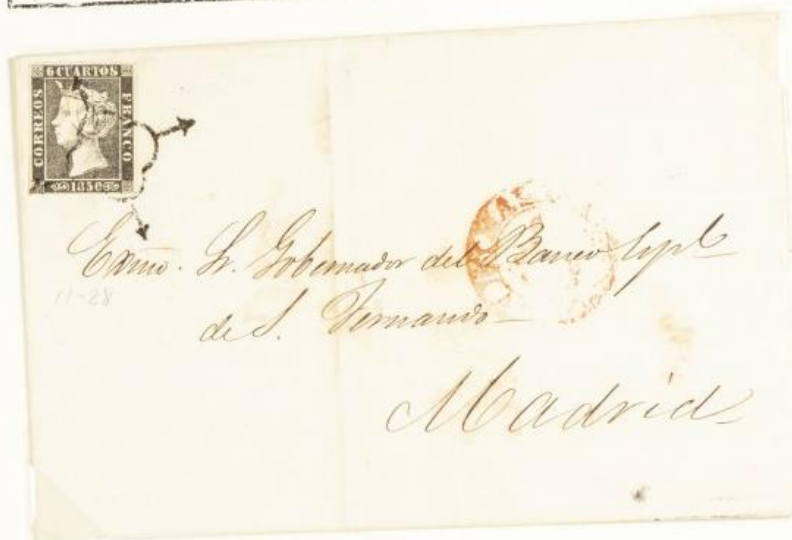 6 CUARTOS
CORREOS
FRANCO
1850
Exmo. Sr. Gobernador del Banco Espl
de S. Fernando
11-28
Madrid